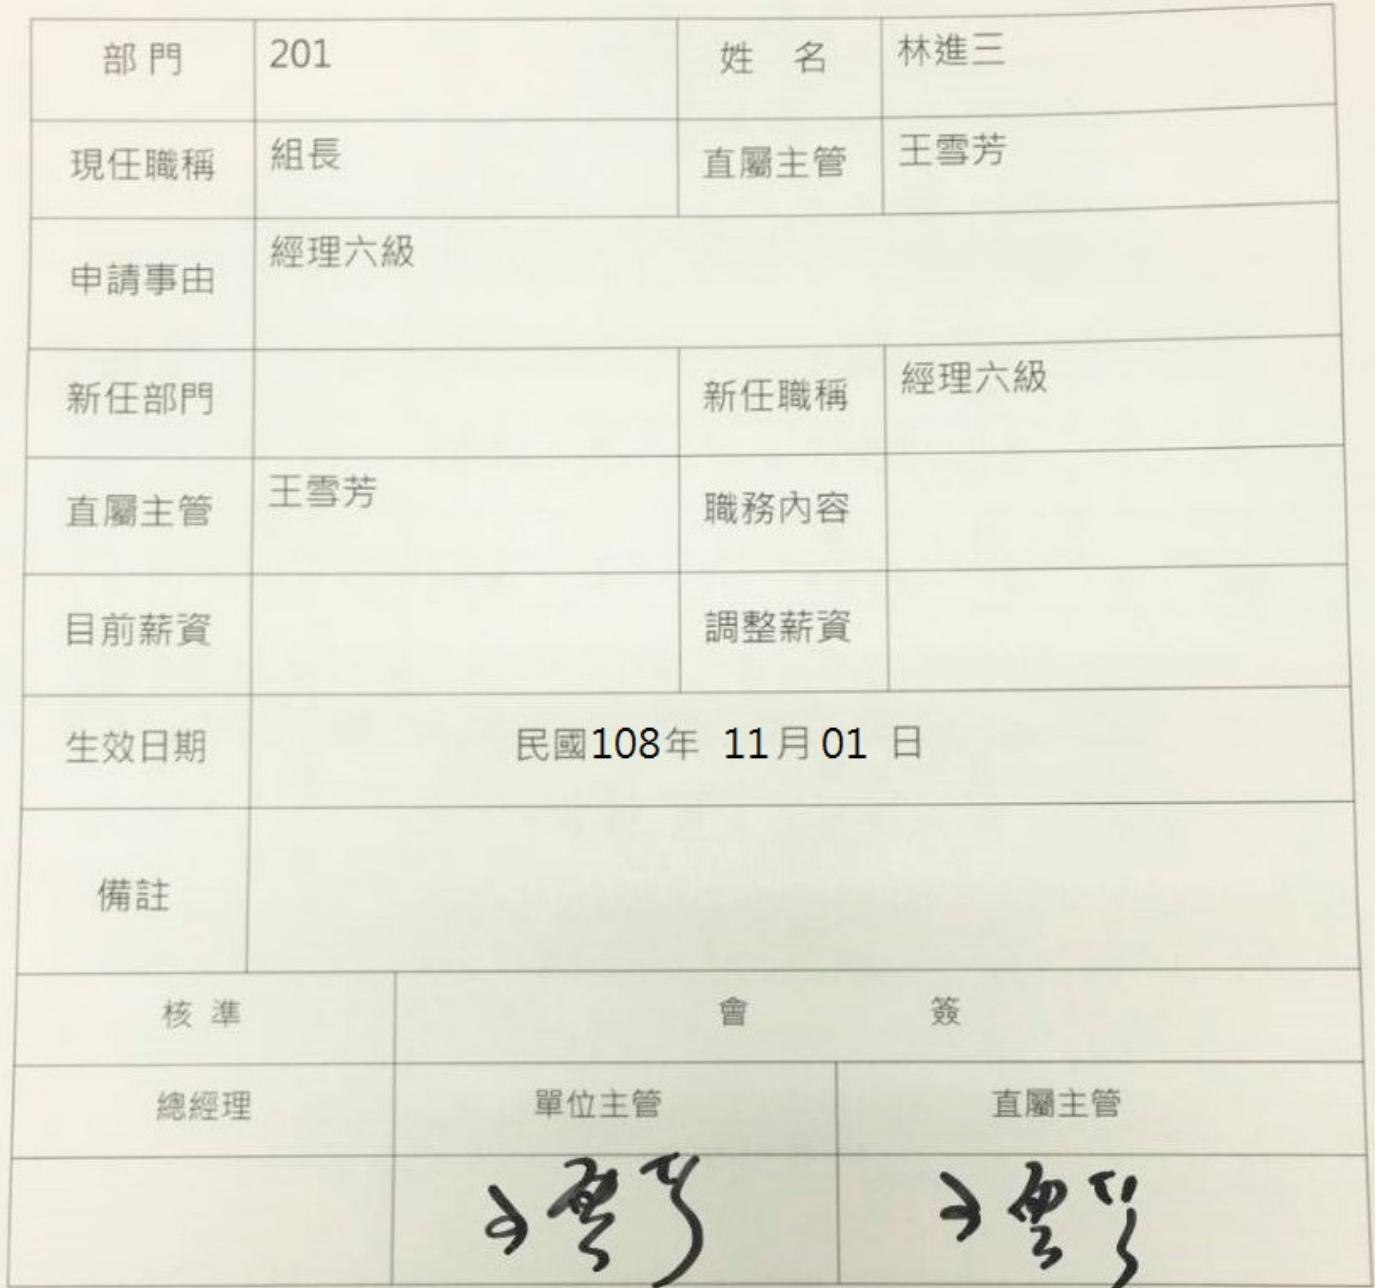 部門 201 姓 名 林進三
現任職稱 組長 直屬主管 王雪芳
申請事由 經理六級
新任部門 新任職稱 經理六級
直屬主管 王雪芳 職務內容
目前薪資 調整薪資
生效日期 民國108年 11月01 日
備註
核 準 會 簽
總經理 單位主管 直屬主管